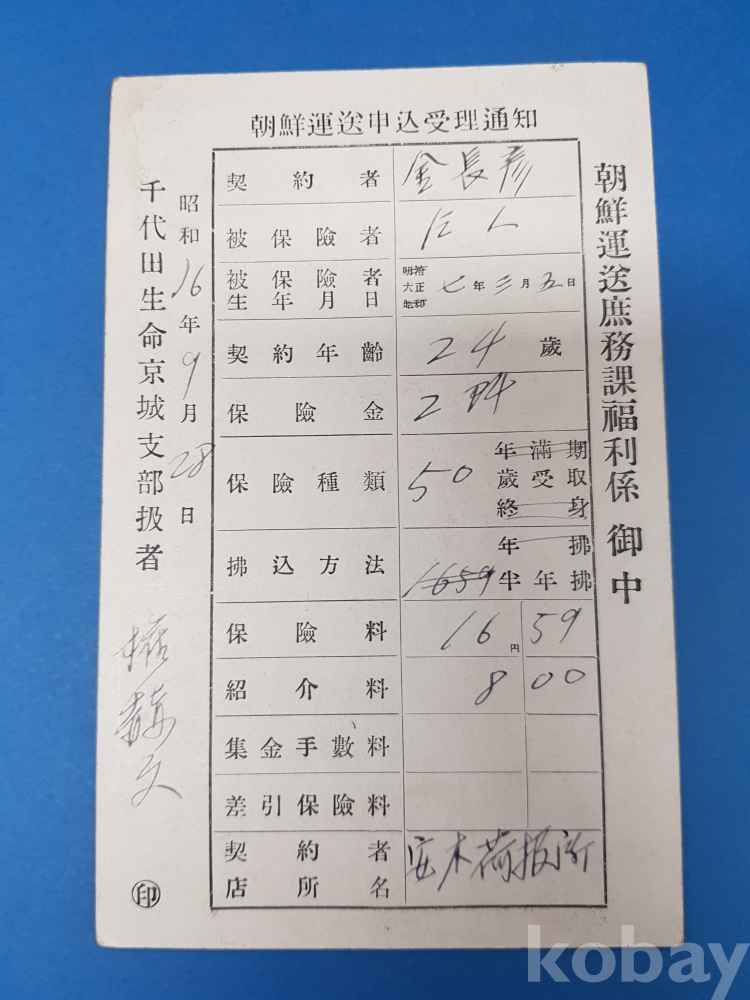 朝鮮運送申込受理通知
朝鮮運送庶務課福利係 御中
契約者 金長彦
被保險者
被保險者生年月日 明治 大正 昭和 七年三月五日
契約年齡 24歲
保險金 2
保險種類 50 年滿期 歲受取 終身
拂込方法 1659 年拂 半年拂
保險料 16円 59
紹介料 8 00
集金手數料
差引保險料
契約者店所名 安木荷扱所
昭和16年9月28日
千代田生命京城支部扱者
印
kobay